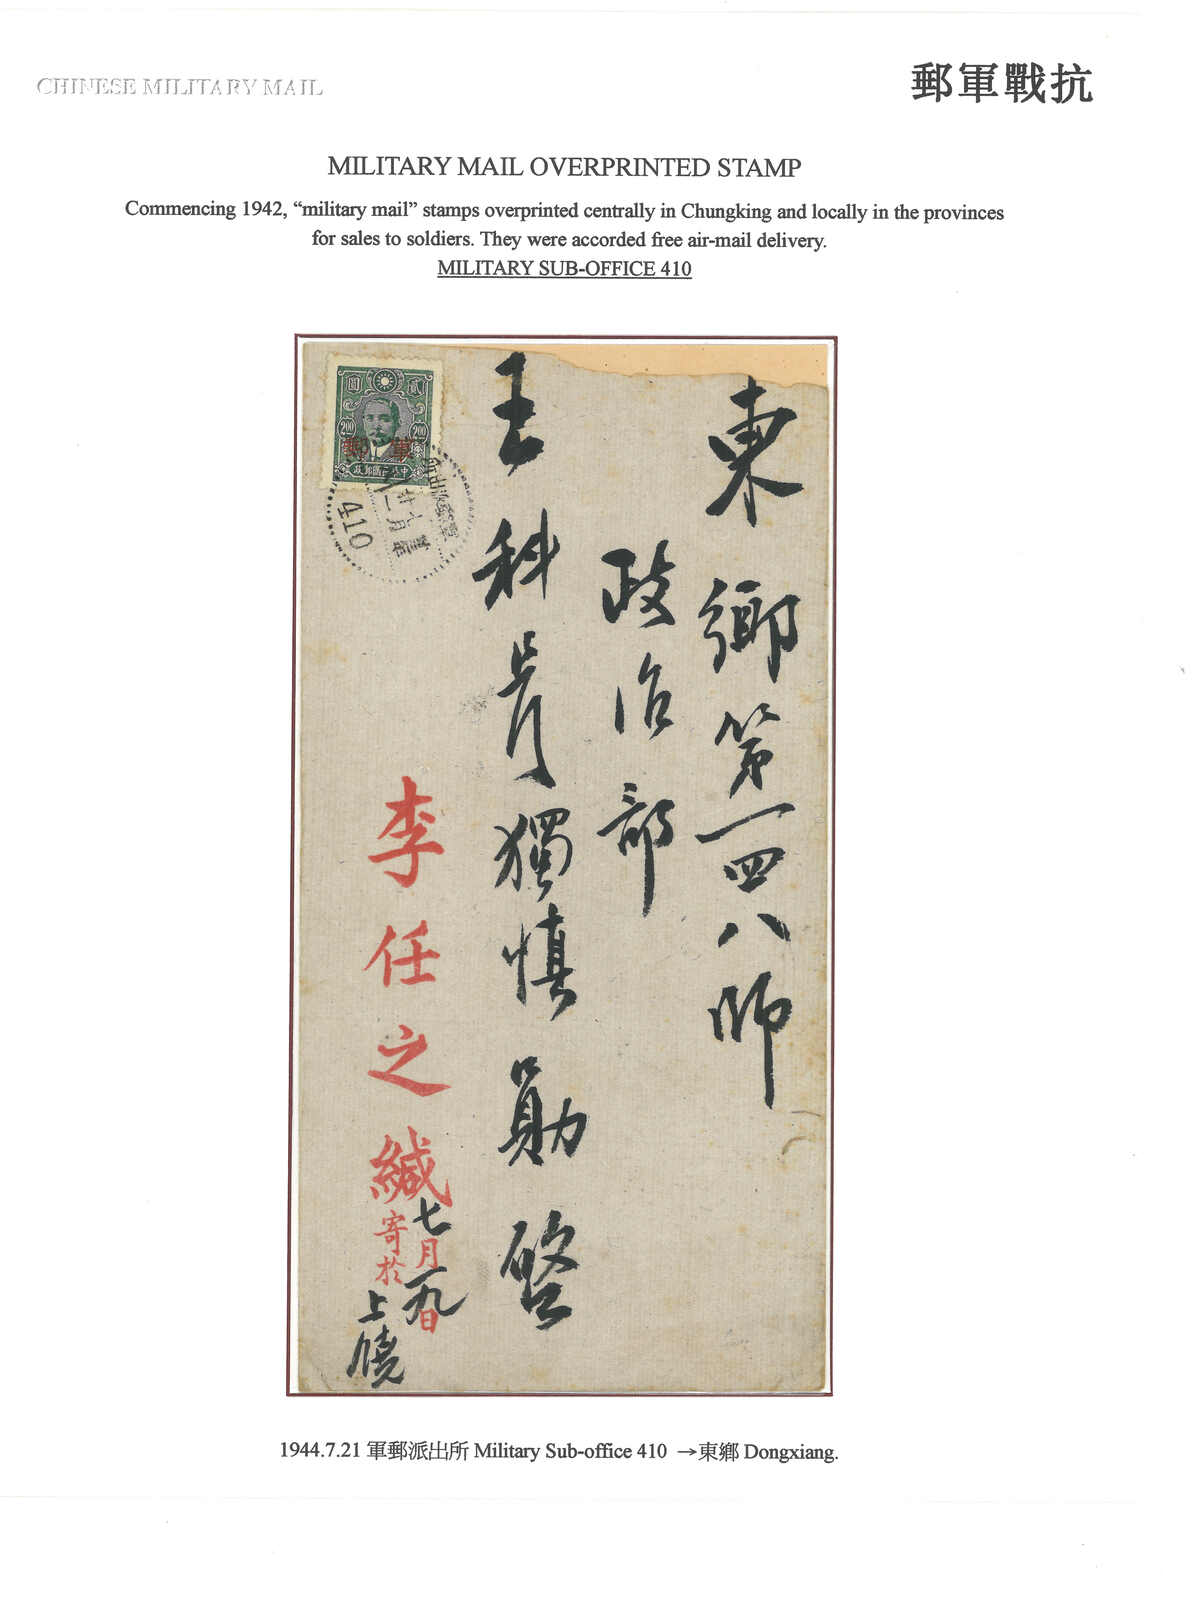 CHINESE MILITARY MAIL
郵軍戰抗
MILITARY MAIL OVERPRINTED STAMP
Commencing 1942, “military mail” stamps overprinted centrally in Chungking and locally in the provinces
for sales to soldiers. They were accorded free air-mail delivery.
MILITARY SUB-OFFICE 410
東鄉第一四八師
政治部
王科長獨慎勛啓
圓 貳
200 200
郵 軍
政郵國民華中
410
李任之緘
七月十九日
寄於上饒
1944.7.21 軍郵派出所 Military Sub-office 410 →東鄉 Dongxiang.